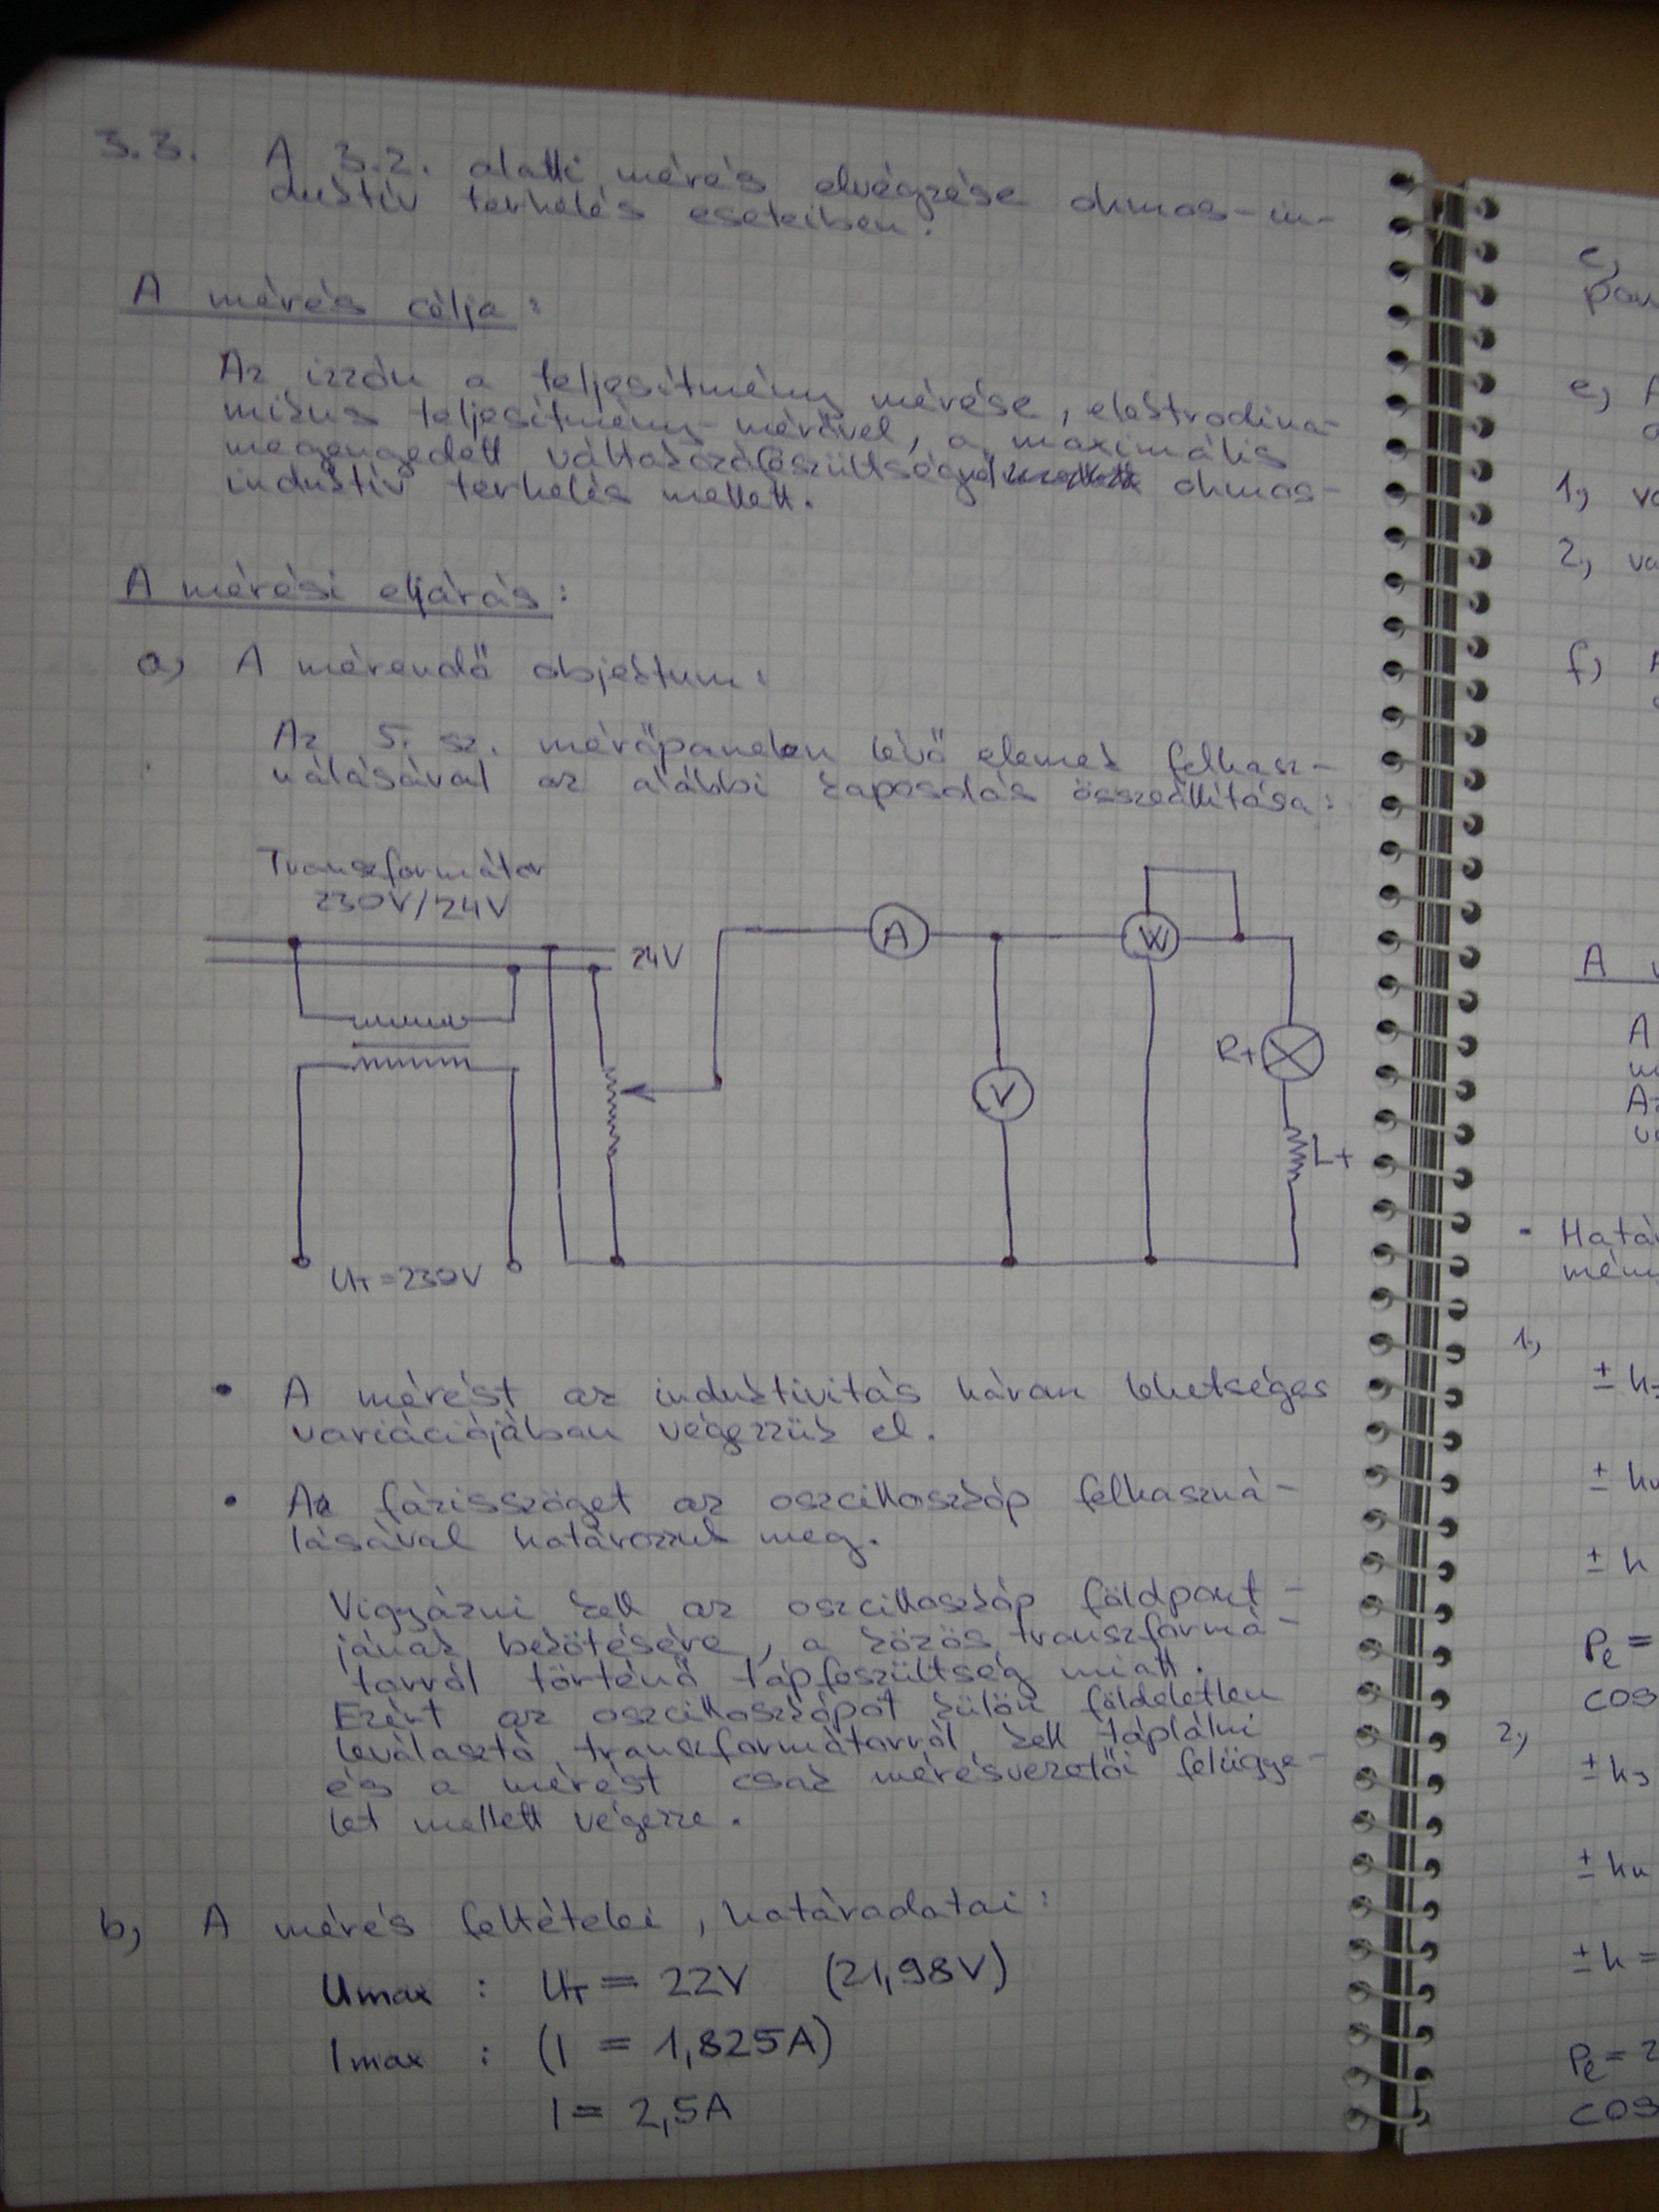 3.3. A 3.2. alatti mérés elvégzése ohmos-in-
duktív terhelés eseteiben.
A mérés célja:
Az izzón a teljesítmény mérése, elektrodina-
mikus teljesítmény-mérővel, a maximális
megengedett váltakozófeszültségnél ohmos-
induktív terhelés mellett.
A mérési eljárás:
a, A mérendő objektum:
Az 5. sz. mérőpanelen lévő elemek felhasz-
nálásával az alábbi kapcsolás összeállítása:
Transzformátor
230V/24V
24V
A
W
V
Rt
Lt
UT=230V
• A mérést az induktivitás három lehetséges
variációjában végezzük el.
• A fázisszöget az oszcilloszkóp felhaszná-
lásával határozzuk meg.
Vigyázni kell az oszcilloszkóp földpont-
jának bekötésére, a közös transzformá-
torról történő tápfeszültség miatt.
Ezért az oszcilloszkópot külön földeletlen
leválasztó transzformátorról kell táplálni
és a mérést csak mérésvezetői felügye-
let mellett végezze.
b, A mérés feltételei, határadatai:
Umax : UT = 22V (21,98V)
Imax : (I = 1,825A)
I = 2,5A
c,
e,
1,
2,
f)
A
A
Az
• Hatá
mény
1,
± h
±
± h
Pe =
cos
2,
±
±
± h =
Pe = 2
cos